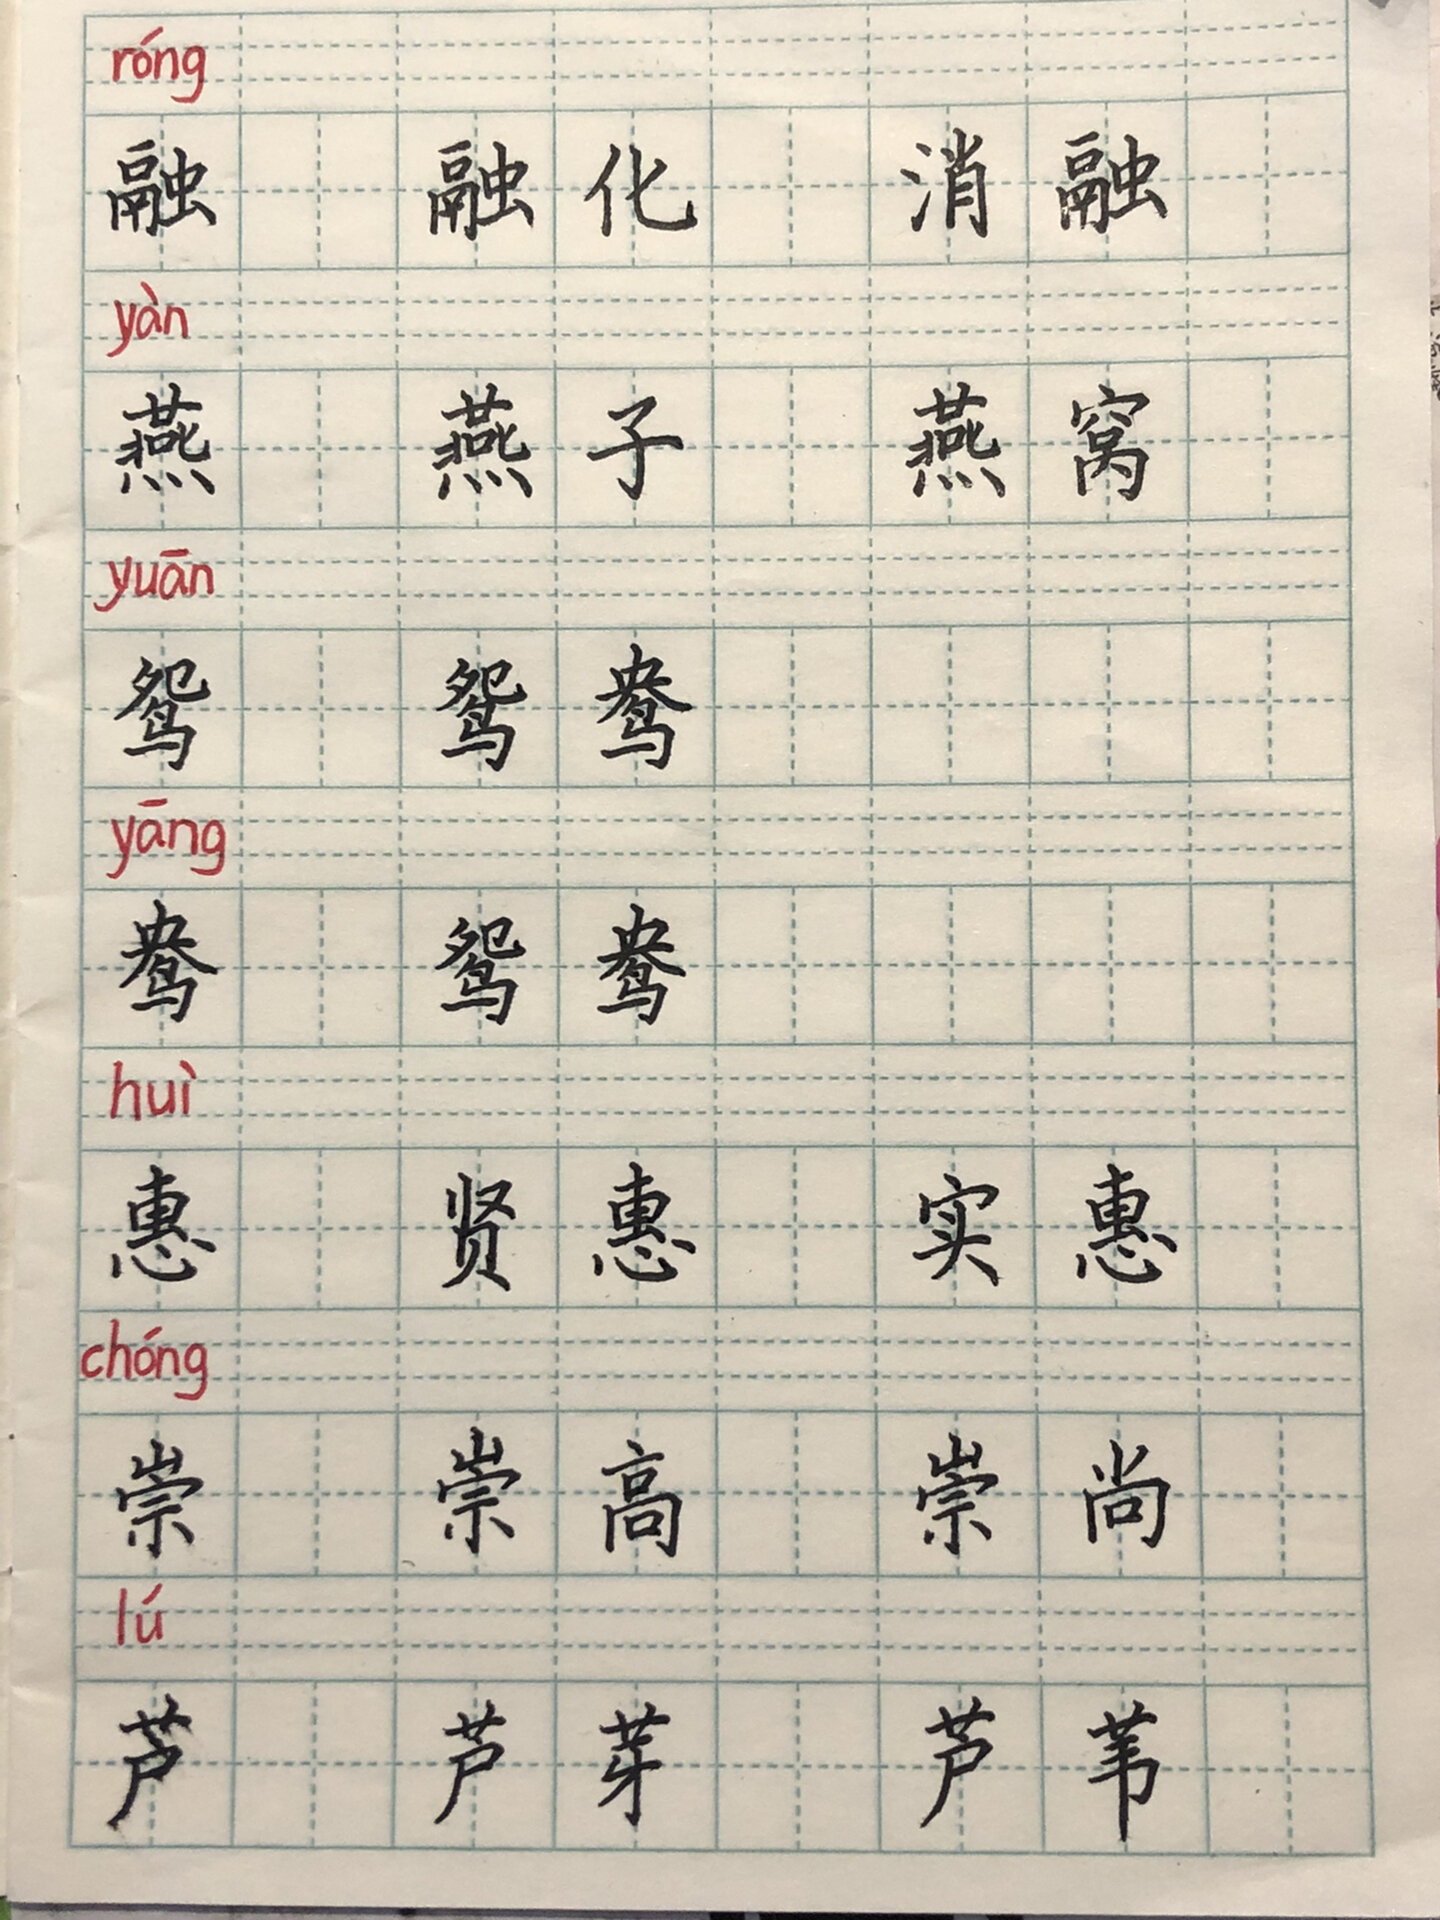 róng
融 融化 消融
yàn
燕 燕子 燕窝
yuān
鸳 鸳鸯
yāng
鸯 鸳鸯
huì
惠 贤惠 实惠
chóng
崇 崇高 崇尚
lú
芦 芦芽 芦苇